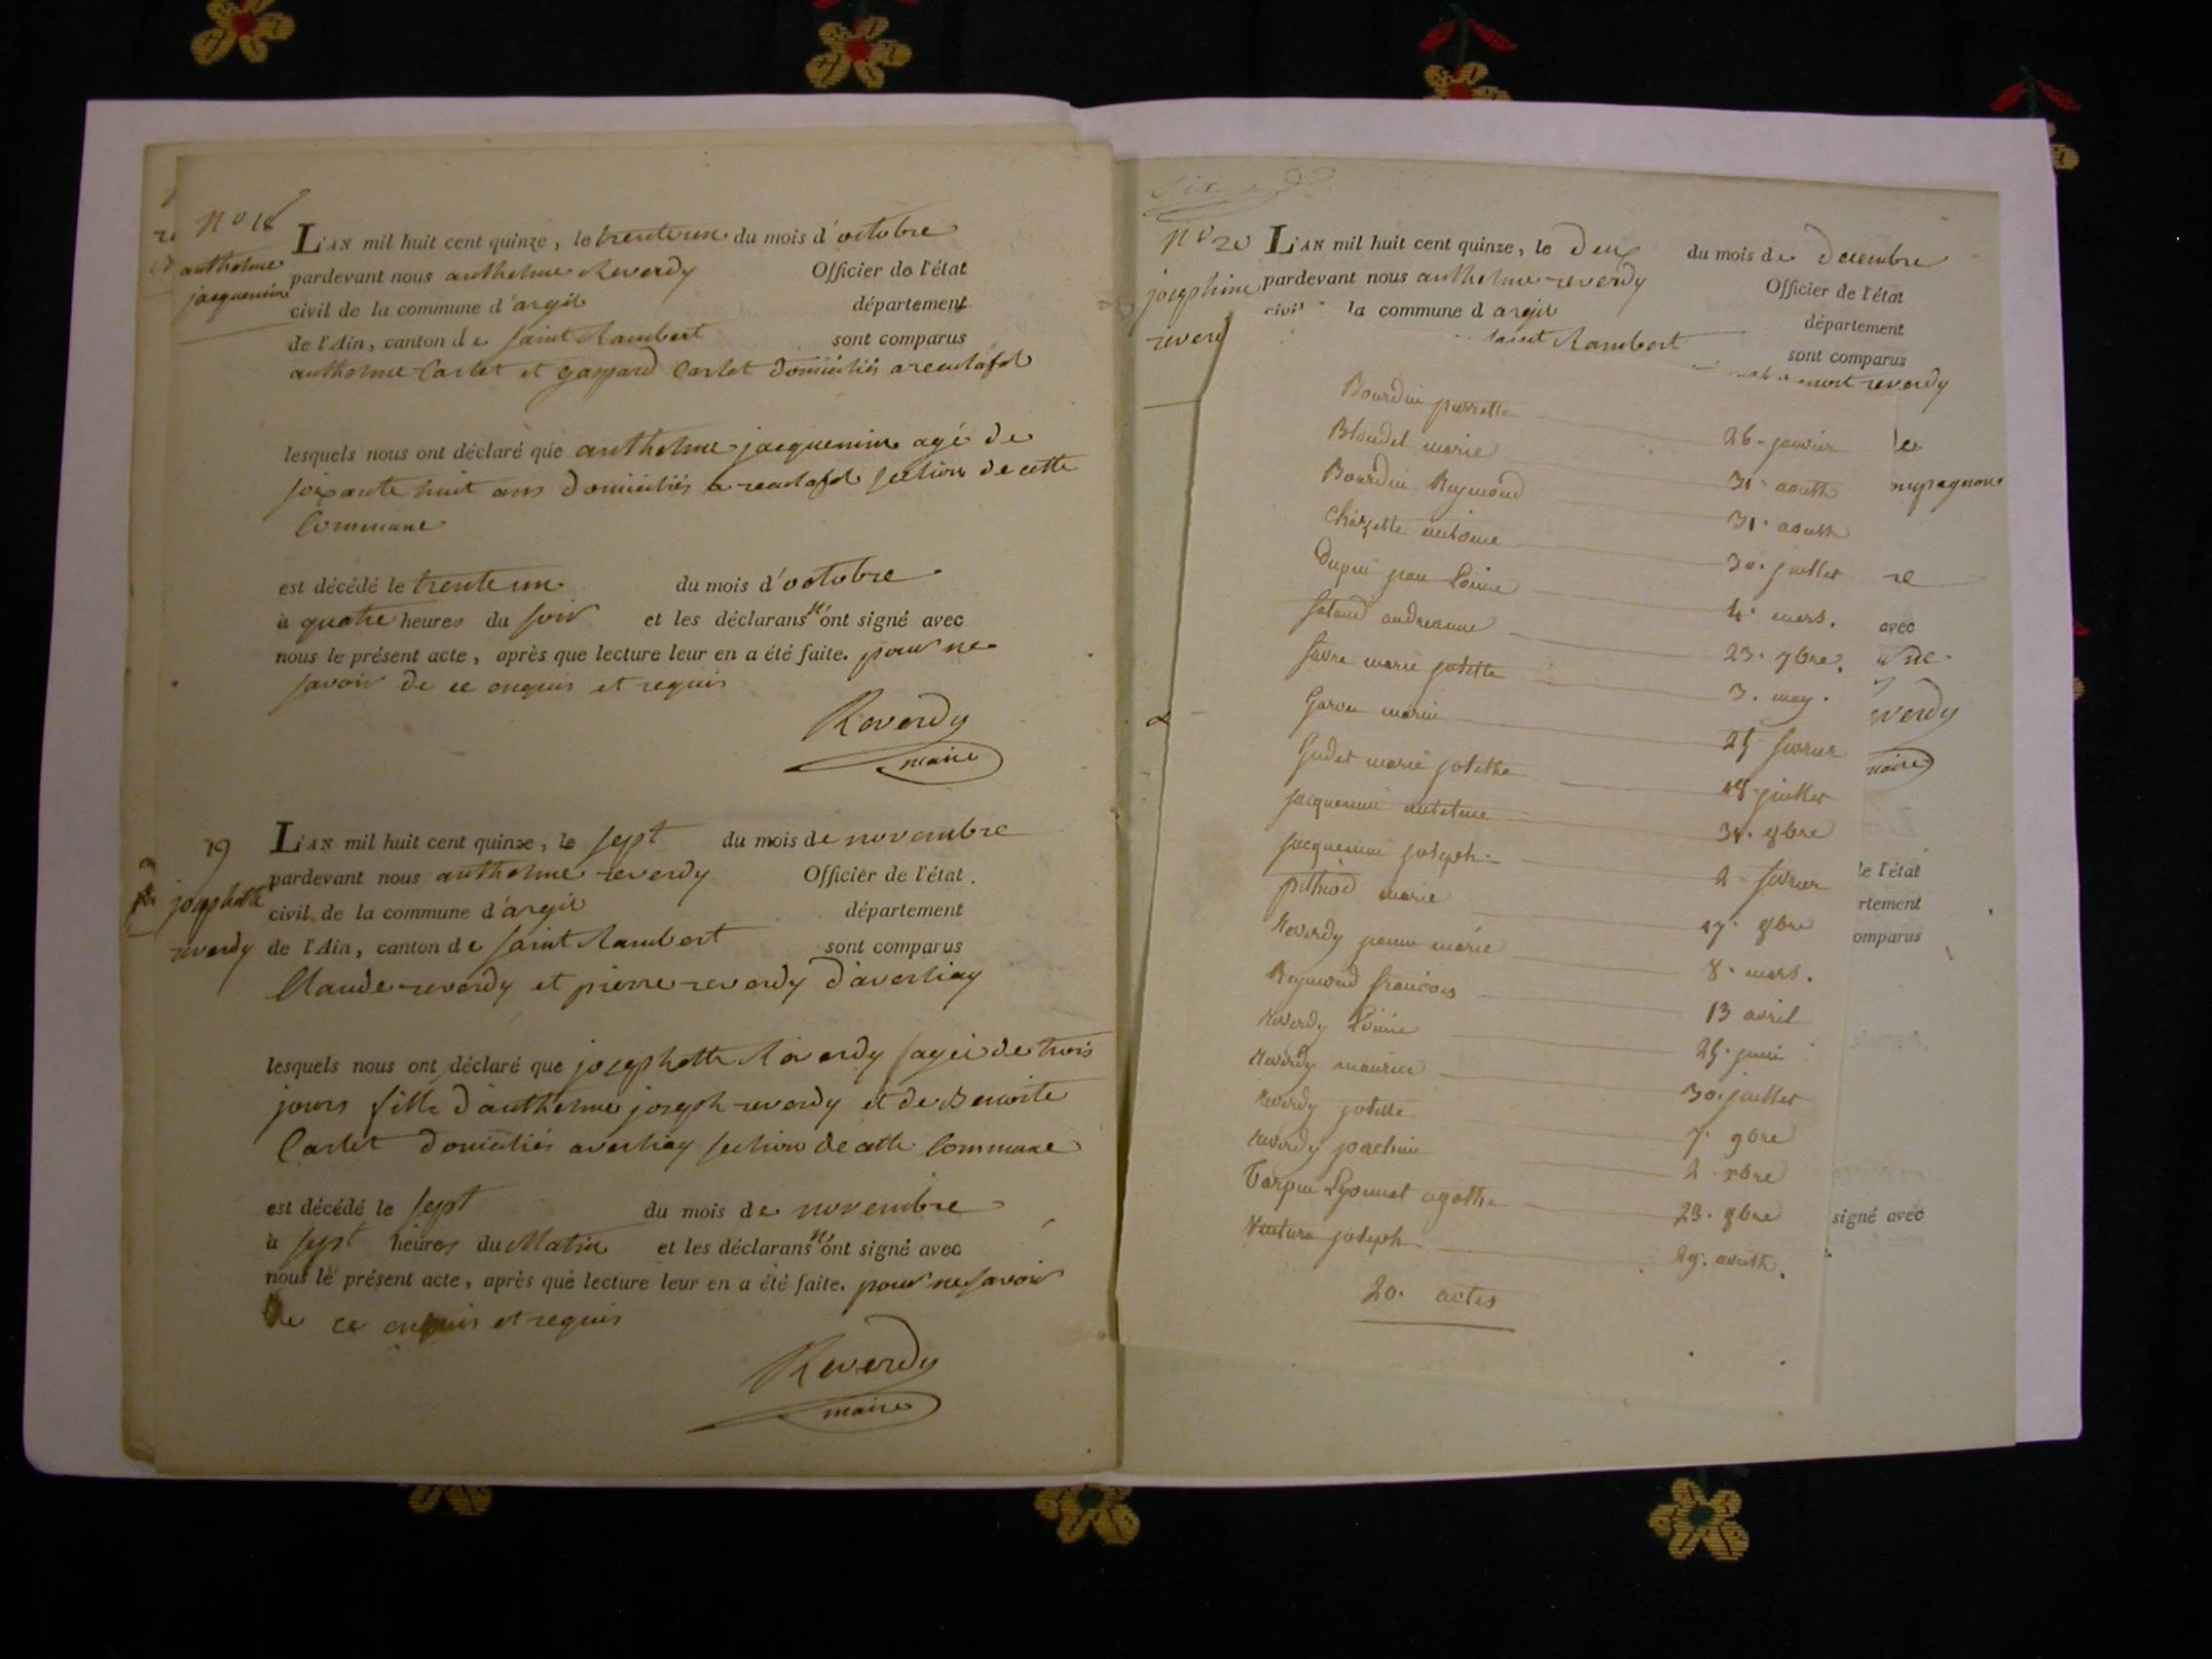 N° 18
anthelme
jacquemin
L'AN mil huit cent quinze, le trente un du mois d'octobre
pardevant nous anthelme Reverdy Officier de l'état
civil de la commune d'argil département
de l'Ain, canton de Saint Rambert sont comparus
anthelme Carlet et gaspard Carlet domiciliés a reculafol
lesquels nous ont déclaré que anthelme jacquemin agé de
soixante huit ans domiciliés a reculafol section de cette
Commune
est décédé le trente un du mois d'octobre
à quatre heures du soir et les déclarans n'ont signé avec
nous le présent acte, après que lecture leur en a été faite. pour ne
savoir de ce enquis et requis
Reverdy
maire
19
josephette
reverdy
L'AN mil huit cent quinze, le sept du mois de novembre
pardevant nous anthelme reverdy Officier de l'état
civil de la commune d'argil département
de l'Ain, canton de Saint Rambert sont comparus
Claude reverdy et pierre reverdy d'averliay
lesquels nous ont déclaré que josephette Reverdy agée de trois
jours fille d'anthelme joseph reverdy et de Benoite
Carlet domiciliés averliay section de cette Commune
est décédé le sept du mois de novembre
à sept heures du Matin et les déclarans n'ont signé avec
nous le présent acte, après que lecture leur en a été faite. pour ne savoir
de ce enquis et requis
Reverdy
maire
N° 20
josephine
reverd
L'AN mil huit cent quinze, le deux du mois de decembre
pardevant nous anthelme reverdy Officier de l'état
civil la commune d argil département
saint Rambert sont comparus
reverdy
Bourdin pierrette 26. janvier
Blondel marie 31. aoust
Bourdin Reymond 31. aoust
Charvette antoine 30. juillet
Dupui jean Louis 4. mars.
andreanne 23. 9bre.
favre marie josette 3. may.
marie 25 fevrier
Gudet marie josette 18. juillet
jacquemin antelme 31. 8bre
jacquemin joseph 2. fevrier
pithiod marie 17. 8bre
Reverdy jeanne marie 8. mars.
Reymond francois 13 avril
Reverdy Louise 25. juin
Reverdy maurice 30. juillet
Reverdy josette 7. 9bre
Reverdy joachim 2. xbre
Tarpin Lyonnet agathe 23. 8bre
Venture joseph 29. aoust.
20. actes
avec
verdy
maire
le l'état
rtement
omparus
signé avec